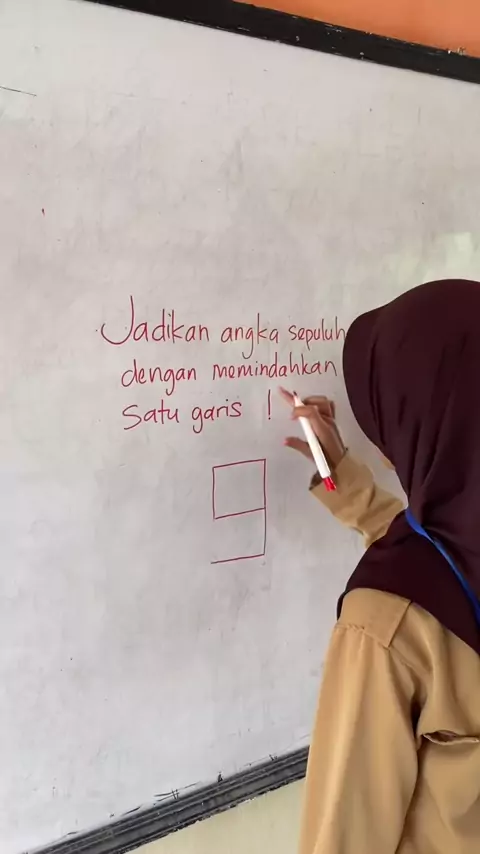 Jadikan angka sepuluh
dengan memindahkan
satu garis !
9